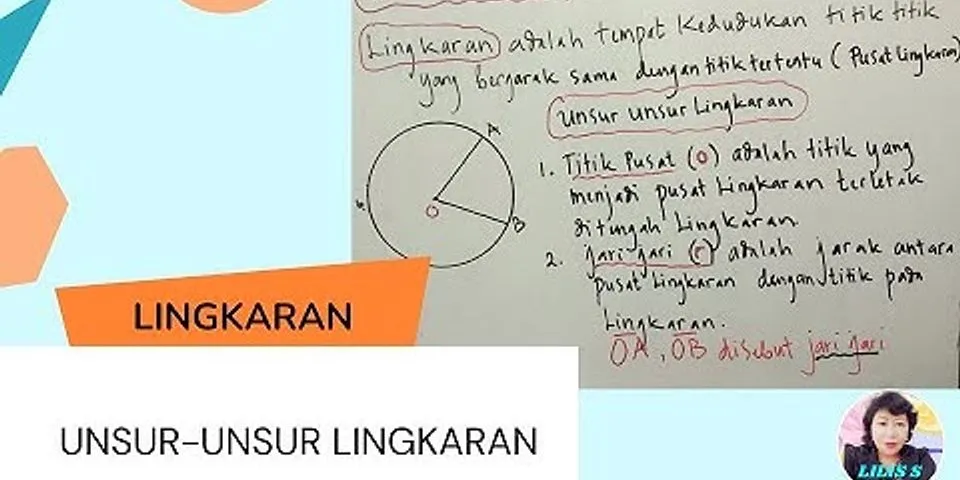 Lingkaran adalah tempat kedudukan titik titik
yang berjarak sama dengan titik tertentu (Pusat Lingkaran)
Unsur unsur Lingkaran
1. Titik Pusat (O) adalah titik yang
menjadi pusat Lingkaran terletak
ditengah Lingkaran.
2. jari-jari (r) adalah jarak antara
pusat Lingkaran dengan titik pada
Lingkaran.
OA, OB disebut jari jari
A
O
B
LINGKARAN
UNSUR-UNSUR LINGKARAN
LILIS S